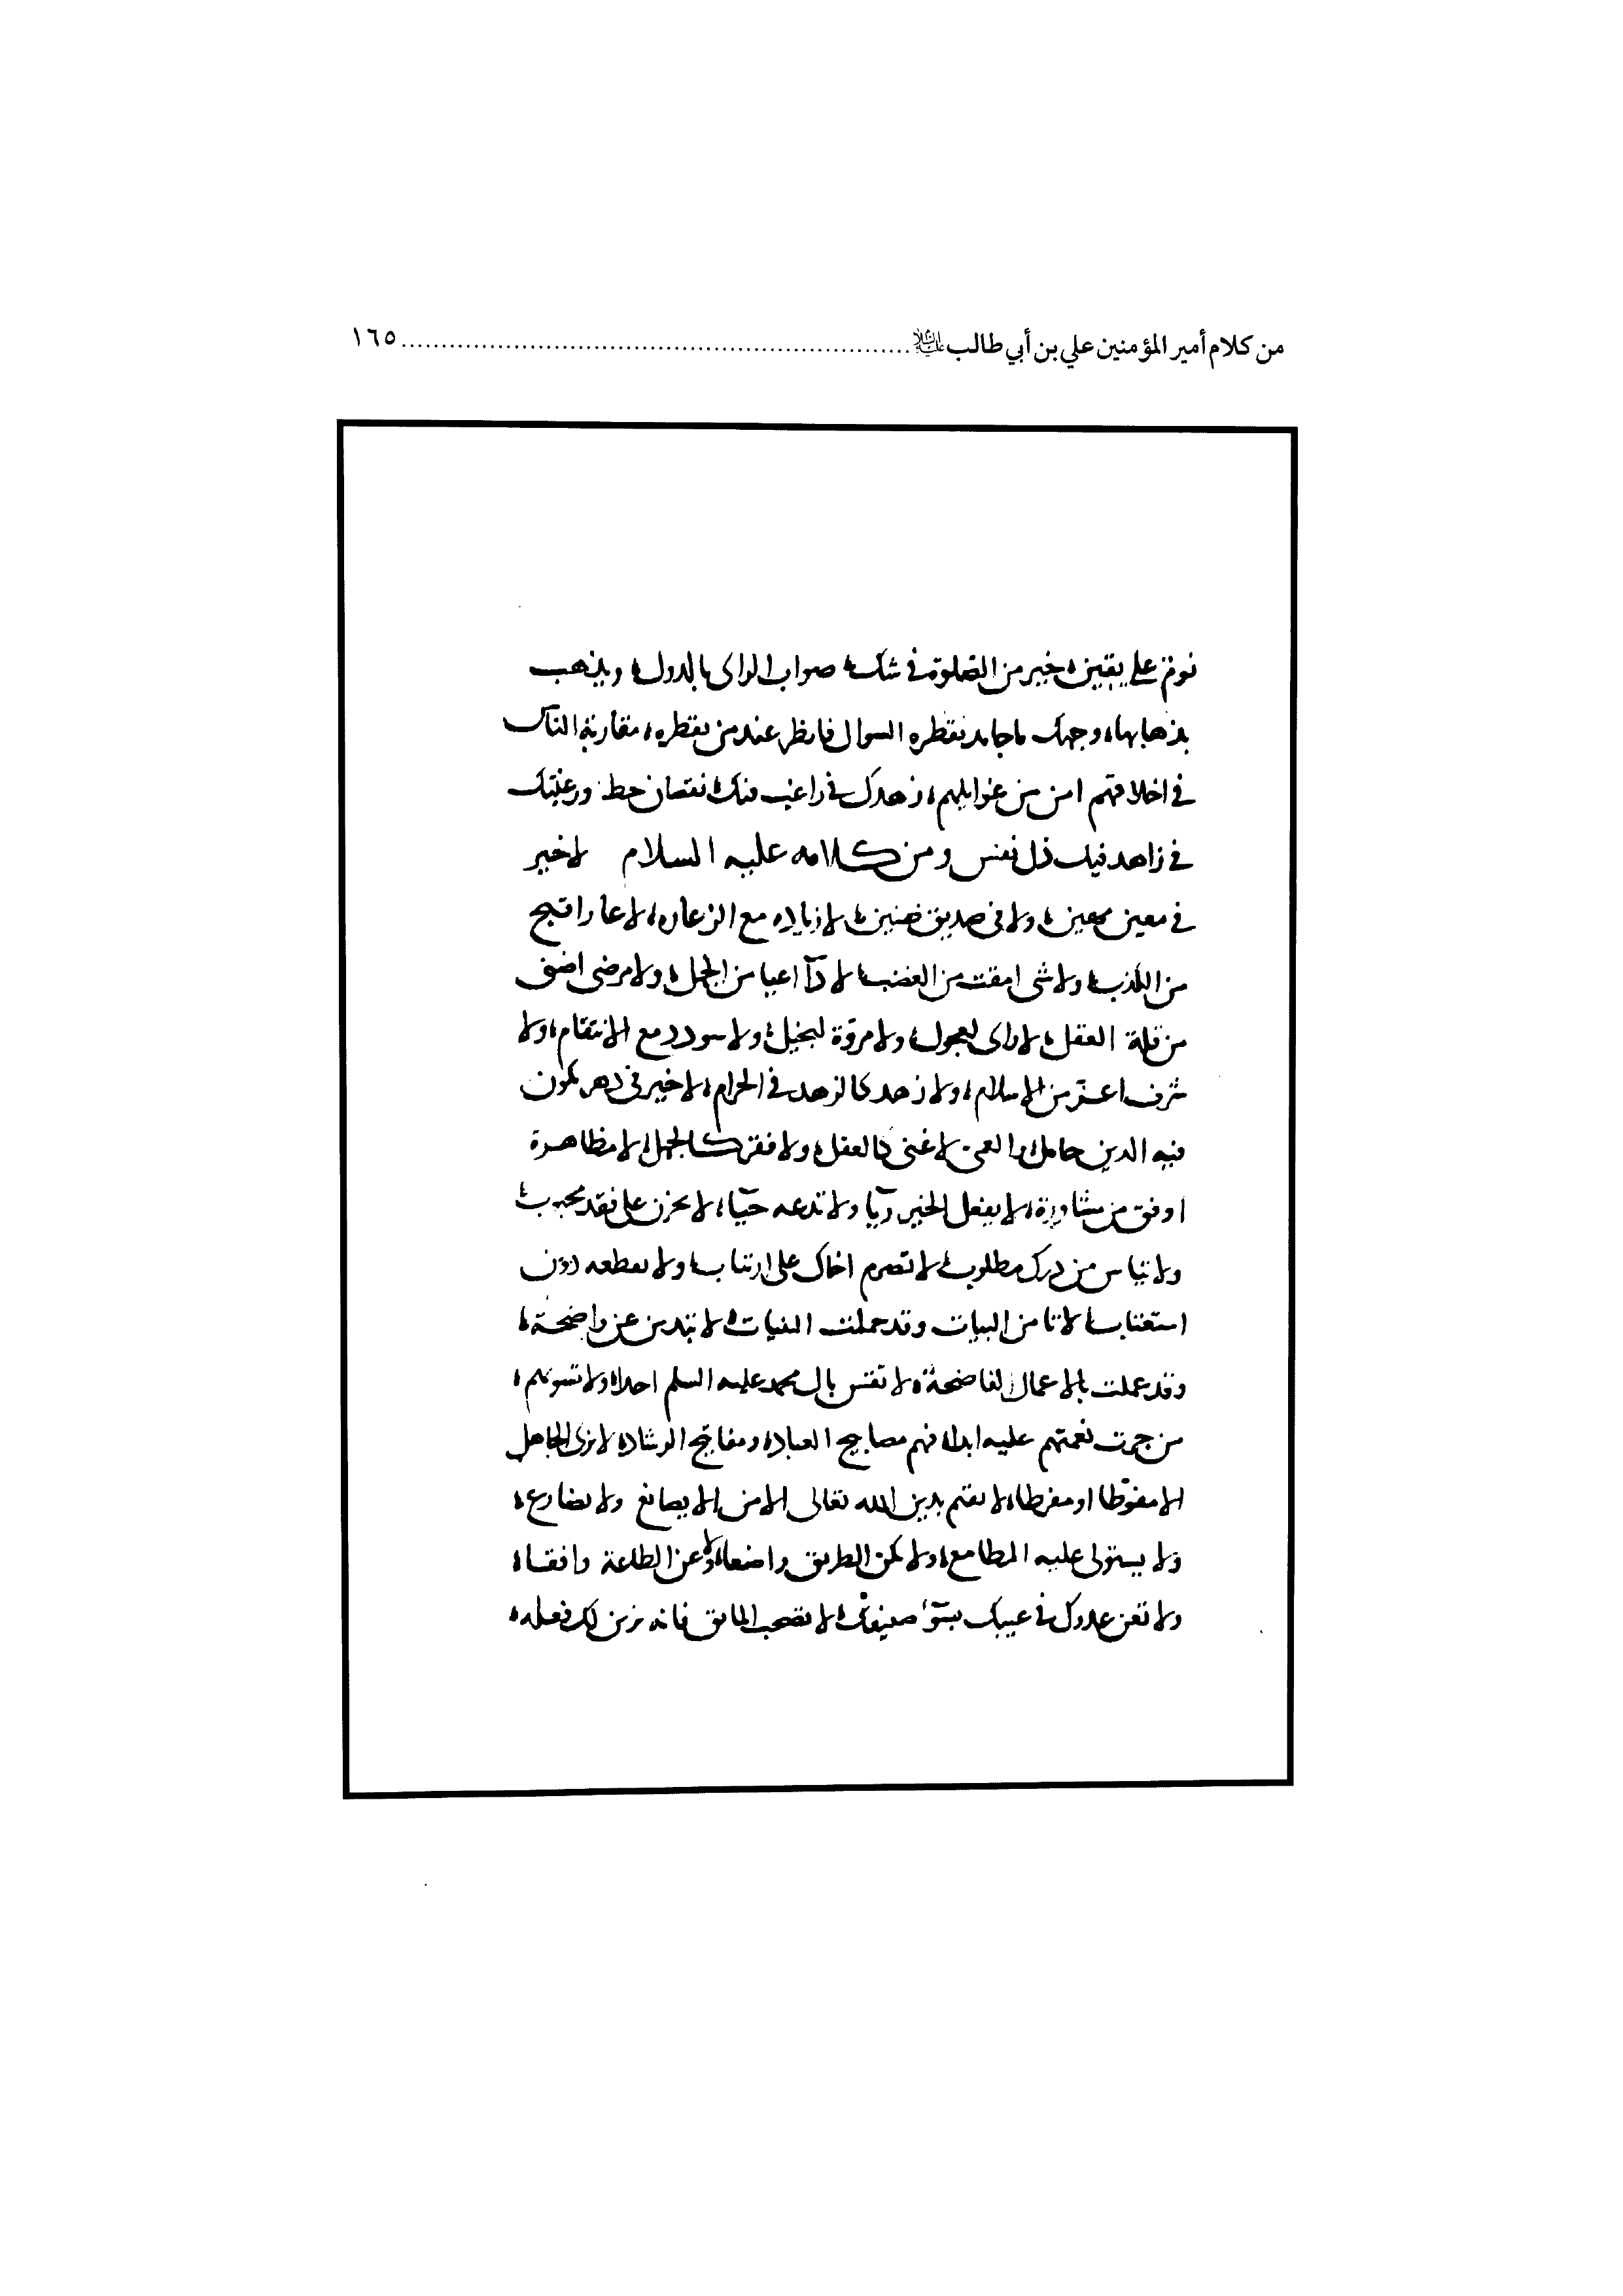 من كلام أمير المؤمنين علي بن أبي طالب عليه السلام ........ ١٦٥
نوم على يقين خير من الصلوة في شك صواب الراى بالدول ويذهب
بذهابها وجهك ماجامد يقطره السوال فانظر عند من يقطره مقاربة الناس
في اخلاقهم امن من غوايلهم زهدك في راغب فيك نقصان حظ ورغبتك
في زاهد فيك ذل نفس ومن كلامه عليه السلام لا خير
في معين مهين ولا في صديق ضنين لا زيادة مع الزعارة لا عار اقبح
من الكذب ولا شى امقت من الغضب لا دآ اعيا من الجهل ولا مرضى اضنى
من قلة العقل لا راى لعجول ولا مروة لبخيل ولا سودد مع الانتقام ولا
شرف اعز من الاسلام ولا زهد كالزهد في الحرام لا خير في دهر يكون
فيه الدين خامل لا غنى كالعقل ولا فقر كالجهل لا مظاهرة
اوفق من مشاورة لا يفعل الخير ريآ ولا تدعه حيآ لا تحزن على فقد محبوب
ولا تياس من درك مطلوب لا تصرم اخاك على ارتياب ولا تقطعه دون
استعتاب لا تامن البيات وقد عملت السيات لا تبدين عن واضحة
وقد عملت بالاعمال الفاضحة لا تقس بال محمد عليه السلم احدا ولا تسوبهم
من جرت نعمتهم عليه ابدا فهم مصابيح العبادة ومفاتيح الرشاد لا ترى الجاهل
الا مفرطا او مفرطا لا يقيم بدين الله تعالى الا من لا يصانع ولا يضارع
ولا يستولى عليه المطامع ولا تكن الطريق واضعا ولا عن الطاعة
ولا تعن عدوك في عيبك بسوء صنيعك لا تصحب المايق فانه يزين لك فعله